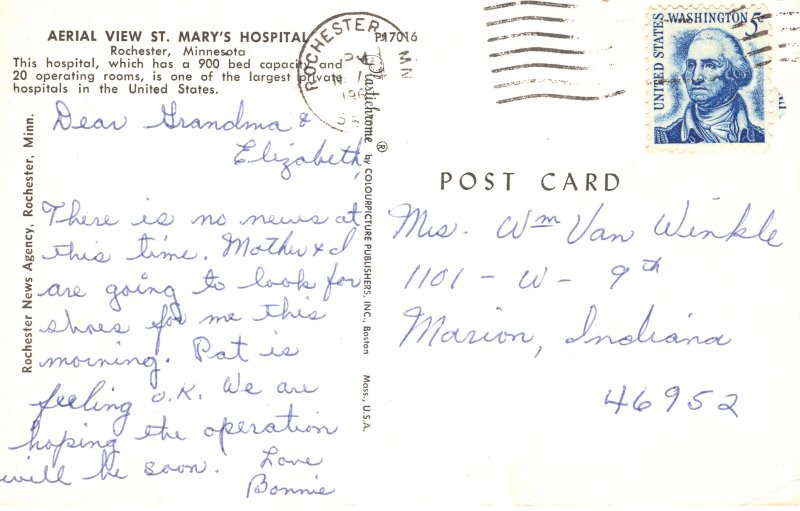 AERIAL VIEW ST. MARY'S HOSPITAL
Rochester, Minnesota
This hospital, which has a 900 bed capacity and
20 operating rooms, is one of the largest private
hospitals in the United States.
P17016
ROCHESTER MN
PM
UNITED STATES
WASHINGTON 5c
Dear Grandma &
Elizabeth,
There is no news at
this time. Mother & I
are going to look for
shoes for me this
morning. Pat is
feeling O.K. We are
hoping the operation
will be soon. Love
Bonnie
Rochester News Agency, Rochester, Minn.
Plastichrome ® by COLOURPICTURE PUBLISHERS, INC., Boston Mass., U.S.A.
POST CARD
Mrs. Wm Van Winkle
1101 - W - 9th
Marion, Indiana
46952